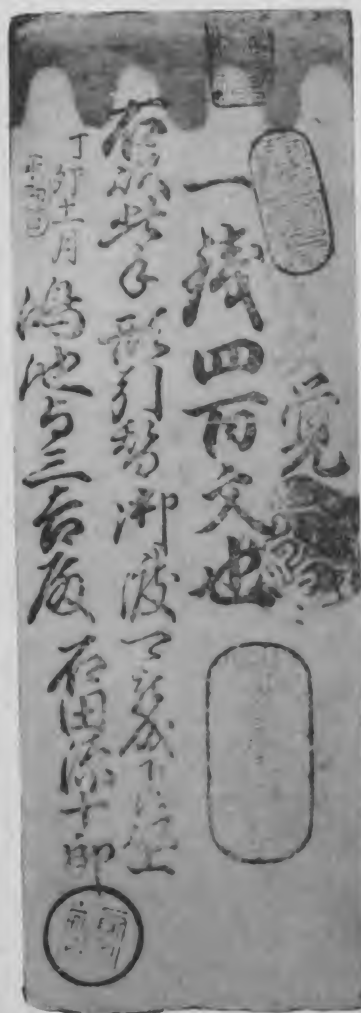 覚
一銭四百文也
右以此手形引替御渡可被成下候以上
丁卯十二月
鴻池与三吉殿 石田源十郎